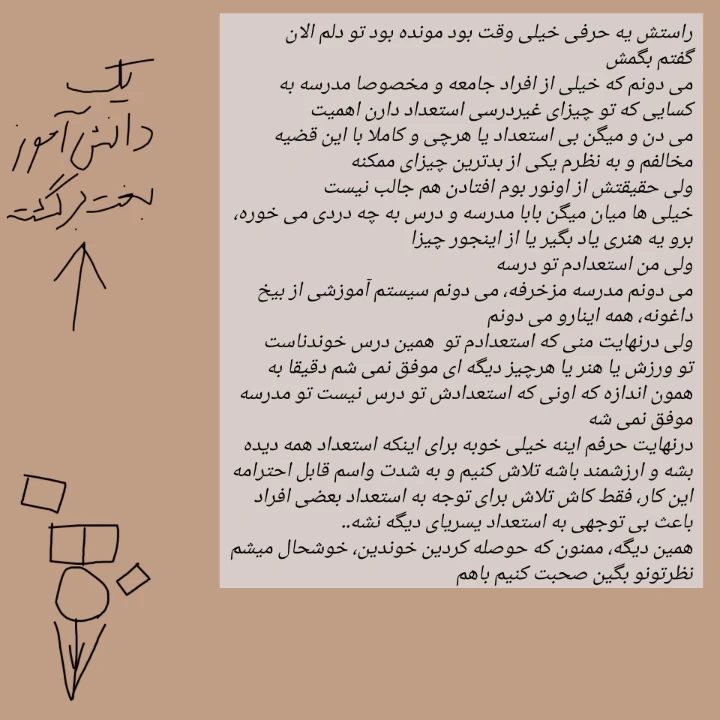 راستش یه حرفی خیلی وقت بود مونده بود تو دلم الان
گفتم بگمش
می دونم که خیلی از افراد جامعه و مخصوصا مدرسه به
کسایی که تو چیزای غیردرسی استعداد دارن اهمیت
می دن و میگن بی استعداد یا هرچی و کاملا با این قضیه
مخالفم و به نظرم یکی از بدترین چیزای ممکنه
ولی حقیقتش از اونور بوم افتادن هم جالب نیست
خیلی ها میان میگن بابا مدرسه و درس به چه دردی می خوره،
برو یه هنری یاد بگیر یا از اینجور چیزا
ولی من استعدادم تو درسه
می دونم مدرسه مزخرفه، می دونم سیستم آموزشی از بیخ
داغونه، همه اینارو می دونم
ولی درنهایت منی که استعدادم تو همین درس خوندناست
تو ورزش یا هنر یا هرچیز دیگه ای موفق نمی شم دقیقا به
همون اندازه که اونی که استعدادش تو درس نیست تو مدرسه
موفق نمی شه
درنهایت حرفم اینه خیلی خوبه برای اینکه استعداد همه دیده
بشه و ارزشمند باشه تلاش کنیم و به شدت واسم قابل احترامه
این کار، فقط کاش تلاش برای توجه به استعداد بعضی افراد
باعث بی توجهی به استعداد یسریای دیگه نشه..
همین دیگه، ممنون که حوصله کردین خوندین، خوشحال میشم
نظرتونو بگین صحبت کنیم باهم
یک
دانش آموز
بخت برگشته